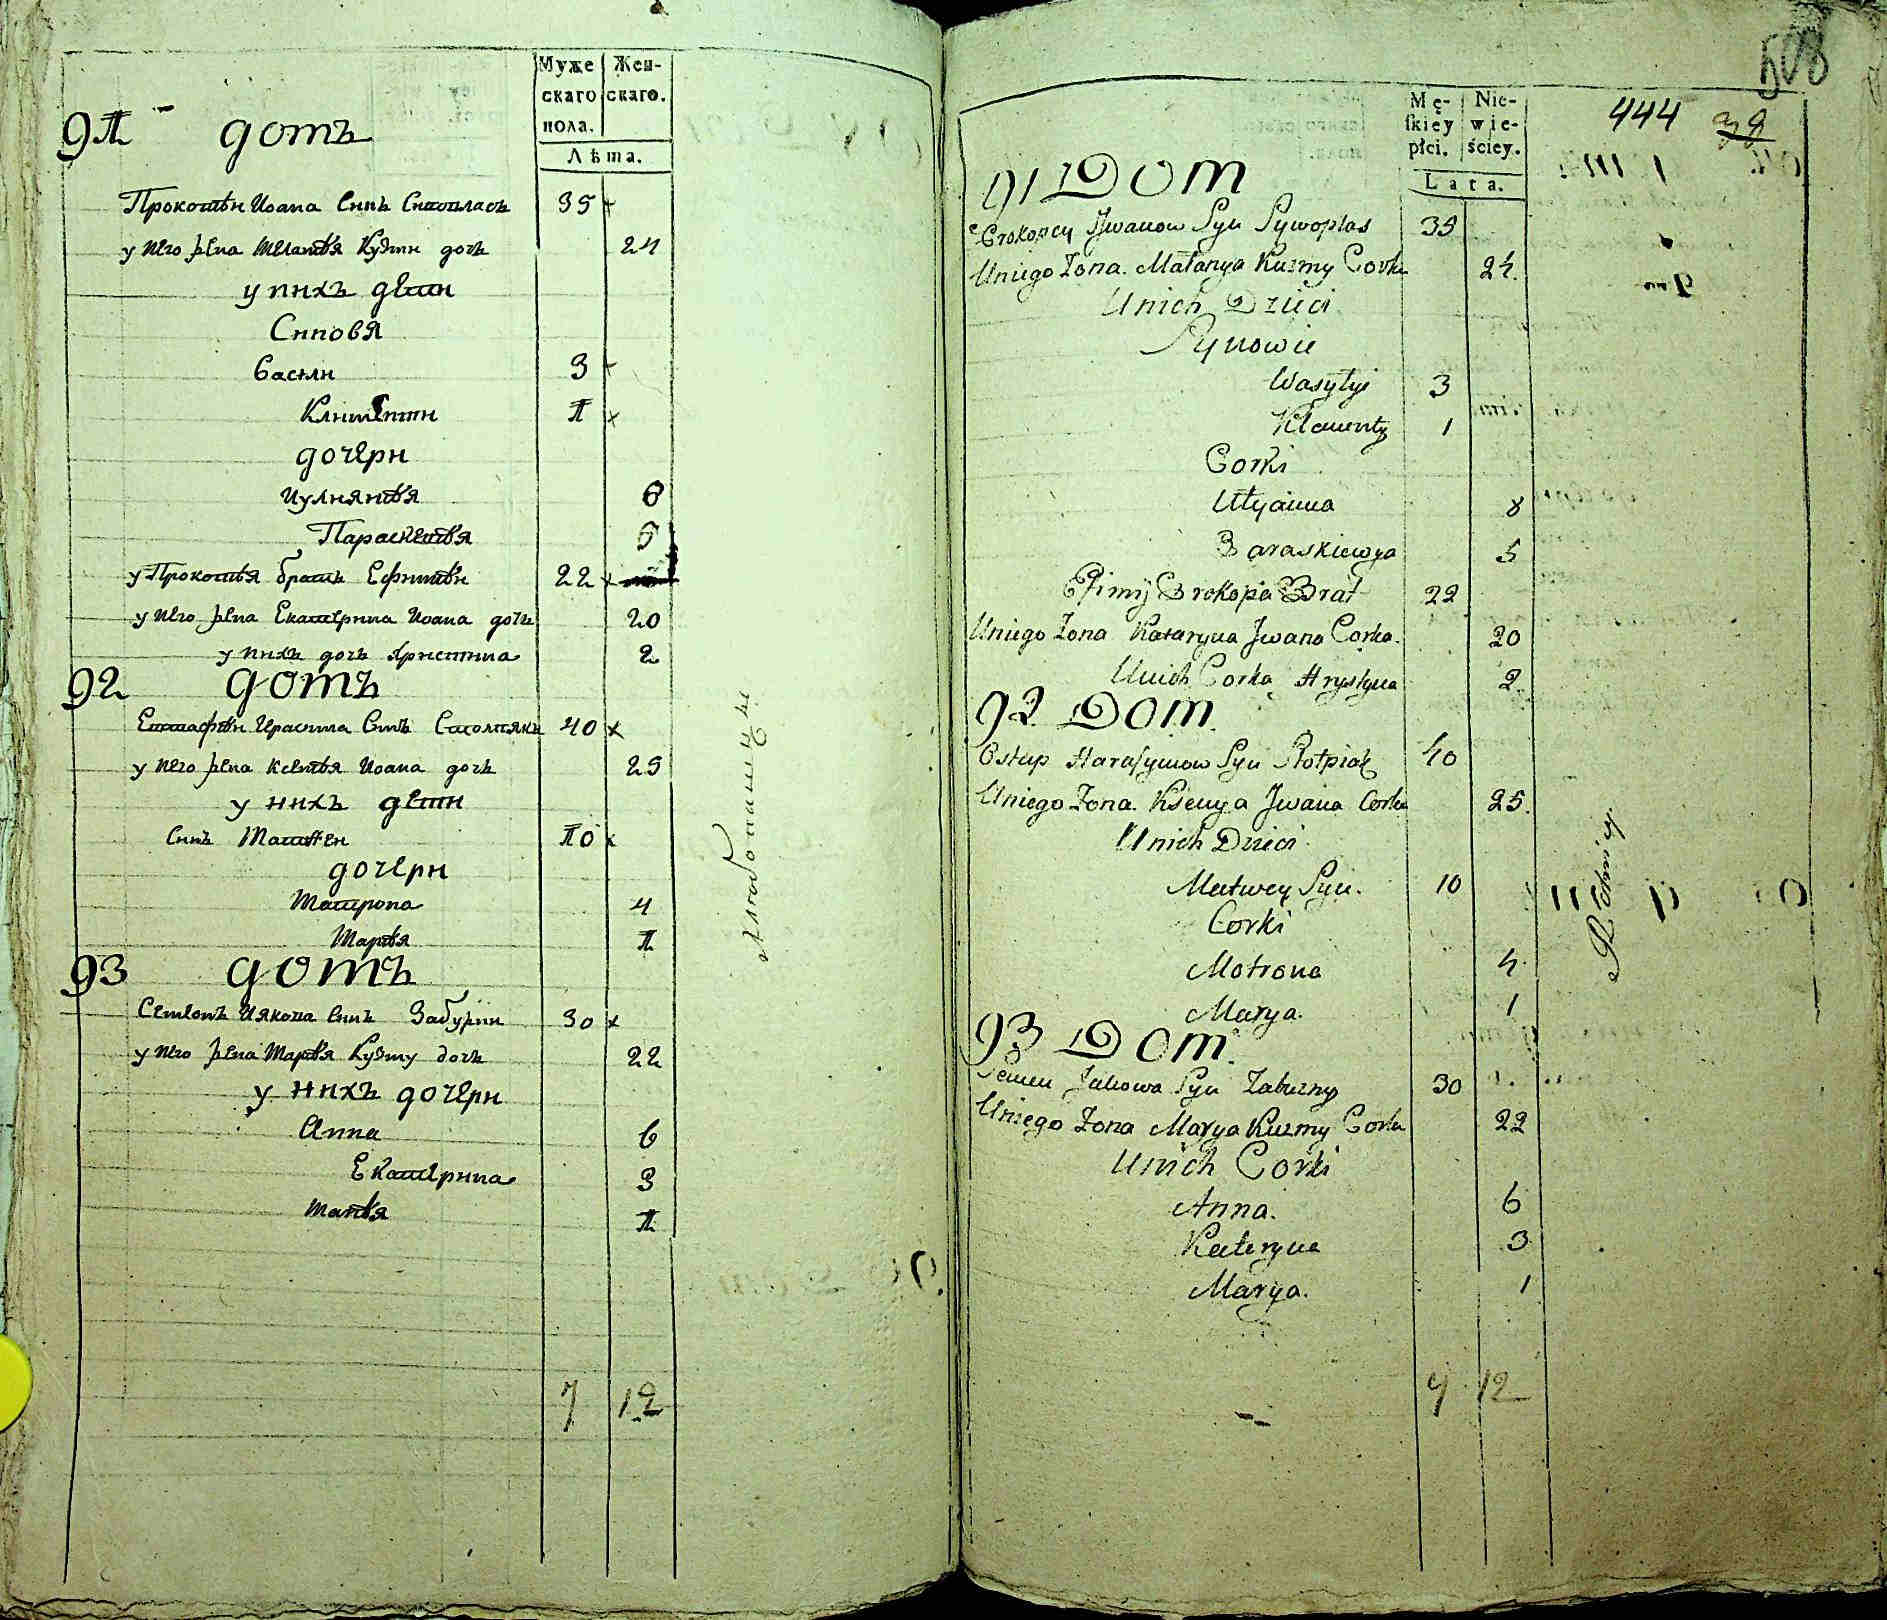 Муже Жен-
скаго скаго.
пола.
Лѣта.
91 домъ
Прокопѣи Иоана Синъ 35
у него жена Меланѣя Кузми дочь 24
у нихъ дети
Синовя
Васили 3
Климентии 1
дочери
Иулиянѣя 8
Параскевѣя 5
у Прокопѣя братъ Ефимѣи 22
у него жена Екатерина Иоана дочь 20
у нихъ дочь Христина 2
92 домъ
Евстафѣи Ирасима Синъ Столпякъ 40
у него жена Ксенѣя Иоана дочь 25
у нихъ дети
Синъ Матвеи 10
дочери
Матрона 4
Марѣя 1
93 домъ
Семенъ Иякова Синъ 30
у него жена Марѣя Кузму дочь 22
у нихъ дочери
Анна 6
Екатерина 3
Марѣя 1
7 12
508
444
Mę- Nie-
ſkiey wie-
płci. ściey.
Lata.
91 Dom
Prokopey Jwanow Syn Sywoplas 35
Uniego Zona. Małanya Kuzmy Corka 24.
Unich Dzieci
Synowie
Wasylyi 3
Klementy 1
Corki
Ulyanna 8
Paraskiewya 5
Efimij Prokopia Brat 22
Uniego Zona Kataryna Jwana Corka. 20
Unich Corka Hrystyna 2.
92 Dom.
Ostap Harasymow Syn Stołpiak 40
Uniego Zona. Ksenya Jwana Corka 25.
Unich Dzieci
Matwey Syn. 10
Corki
Motrona 4
Marya. 1
93 Dom.
Semen Jakowa Syn Zaburny 30
Uniego Zona Marya Kuzmy Corka 22
Unich Corki
Anna. 6
Kateryna 3
Marya. 1
7 12